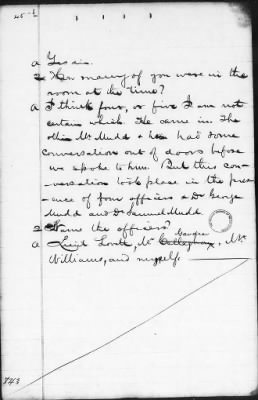 45-2
A Yes sir.
Q How many of you were in the
room at the time?
A I think four, or five I am not
certain which. He came in. The
other Mr Mudd & he had some
conversation out of doors before
we spoke to him. But this con-
versation took place in the pres-
ence of four officers & Dr George
Mudd and Dr Samuel Mudd.
Q Name the officers?
Gavacan
A Lieut Lovett, Mr Mr
Williams, and myself.
843